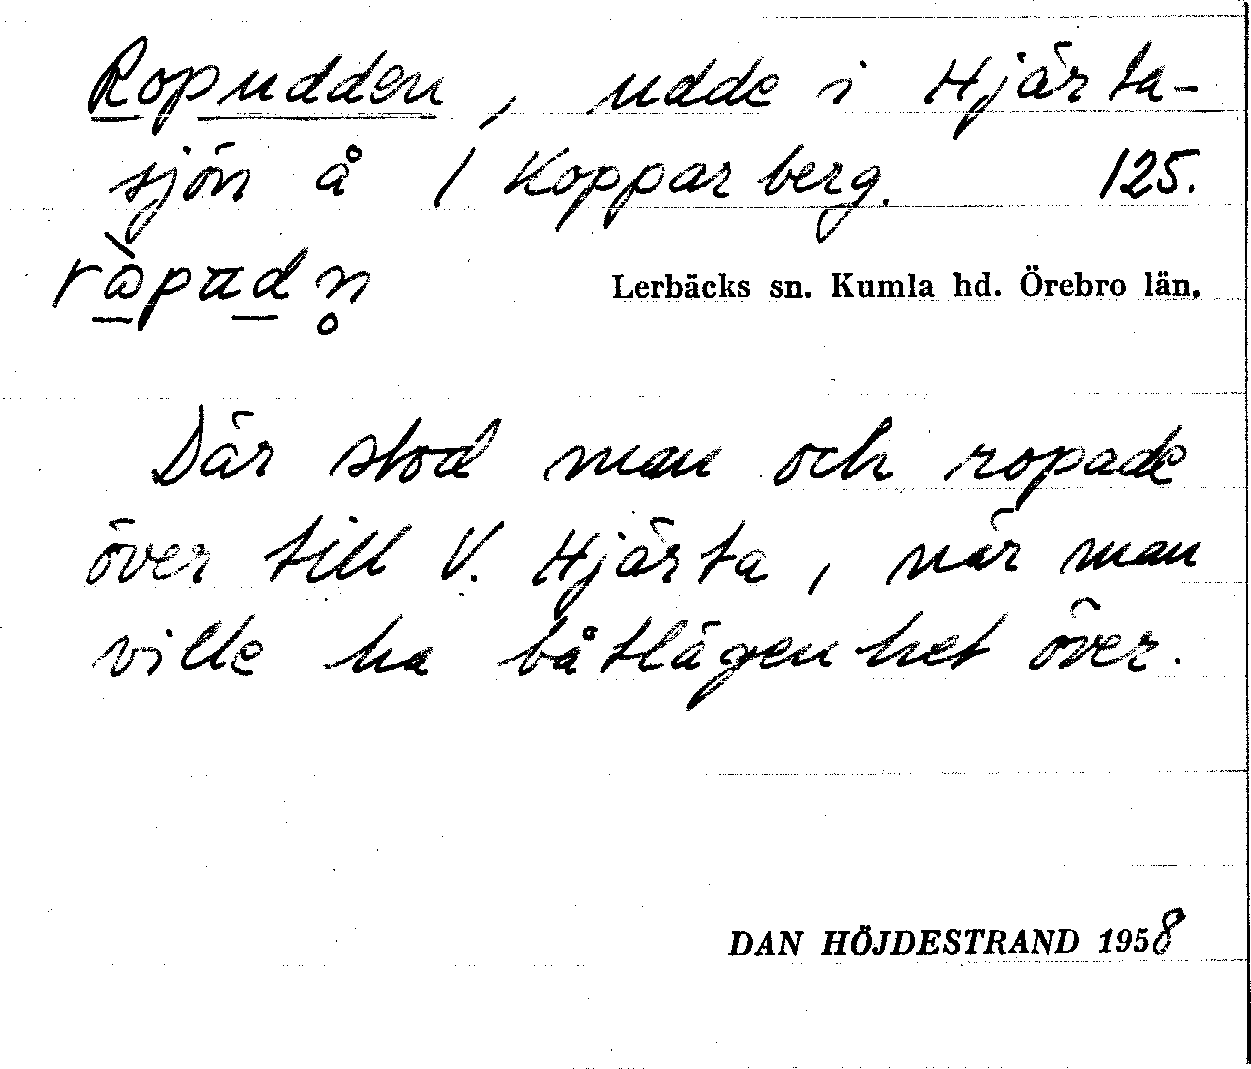 Ropudden, udde i Hjärta-
sjön å 1 Kopparberg. 125.
ròpudn̥
Lerbäcks sn. Kumla hd. Örebro län.
Där stod man och ropade
över till V. Hjärta, när man
ville ha båtlägenhet över.
DAN HÖJDESTRAND 1958